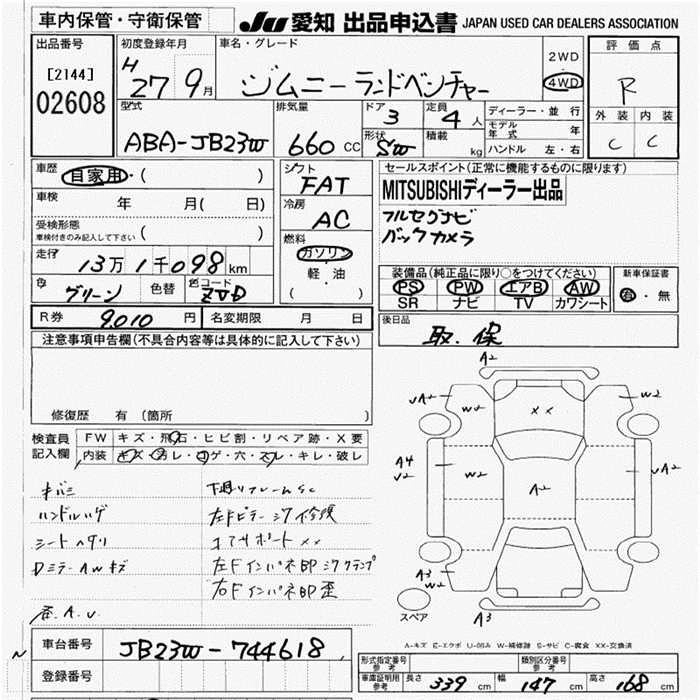 車内保管・守衛保管
JU 愛知 出品申込書 JAPAN USED CAR DEALERS ASSOCIATION
出品番号
[2144]
02608
初度登録年月
H 27 9月
車名・グレード
ジムニーランドベンチャー
2WD
4WD
評価点
R
外装 内装
C C
型式
ABA-JB23W
排気量
660 CC
ドア 3
定員 4 人
形状 SW
積載 kg
ディーラー・並行
モデル年式 年
ハンドル 左・右
車歴
自家用・( )
車検 年 月( 日)
受検形態
車検付きのみ記入して下さい ( )
走行
13万1千098km
色 グリーン
色替
色コード ZVD
シフト
FAT
冷房
AC
燃料
ガソリン
軽・油
( )
セールスポイント(正常に機能するものに限ります)
MITSUBISHIディーラー出品
フルセグナビ
バックカメラ
装備品(純正品に限り○をつけてください)
PS PW エアB AW
SR ナビ TV カワシート
新車保証書
有・無
R券 9010 円
名変期限 月 日
後日品
取.保
注意事項申告欄(不具合内容等は具体的に記入して下さい)
修復歴 有(箇所 )
検査員記入欄
FW キズ・飛石・ヒビ割・リペア跡・X要
内装 キズ・汚レ・コゲ・穴・スレ・キレ・破レ
キバミ
ハンドルハゲ
シートヘタリ
DミラーAWキズ
下廻りフレームSC
左Fピラー ジワ修複
コアサポートXX
左Fインパネ部ジワクランプ
右Fインパネ部歪
A2
UA2
W2
W2
XX
W2
A4
U2
W2
A2
UA2
A3
W2
A3
スペア
A-キズ E-エクボ U-凹み W-補修跡 S-サビ C-腐食 XX-交換済
車台番号
JB23W-744618
登録番号
形式指定番号 参考
類別区分番号 参考
車庫証明用 参考
長さ 339 cm
幅 147 cm
高さ 168 cm